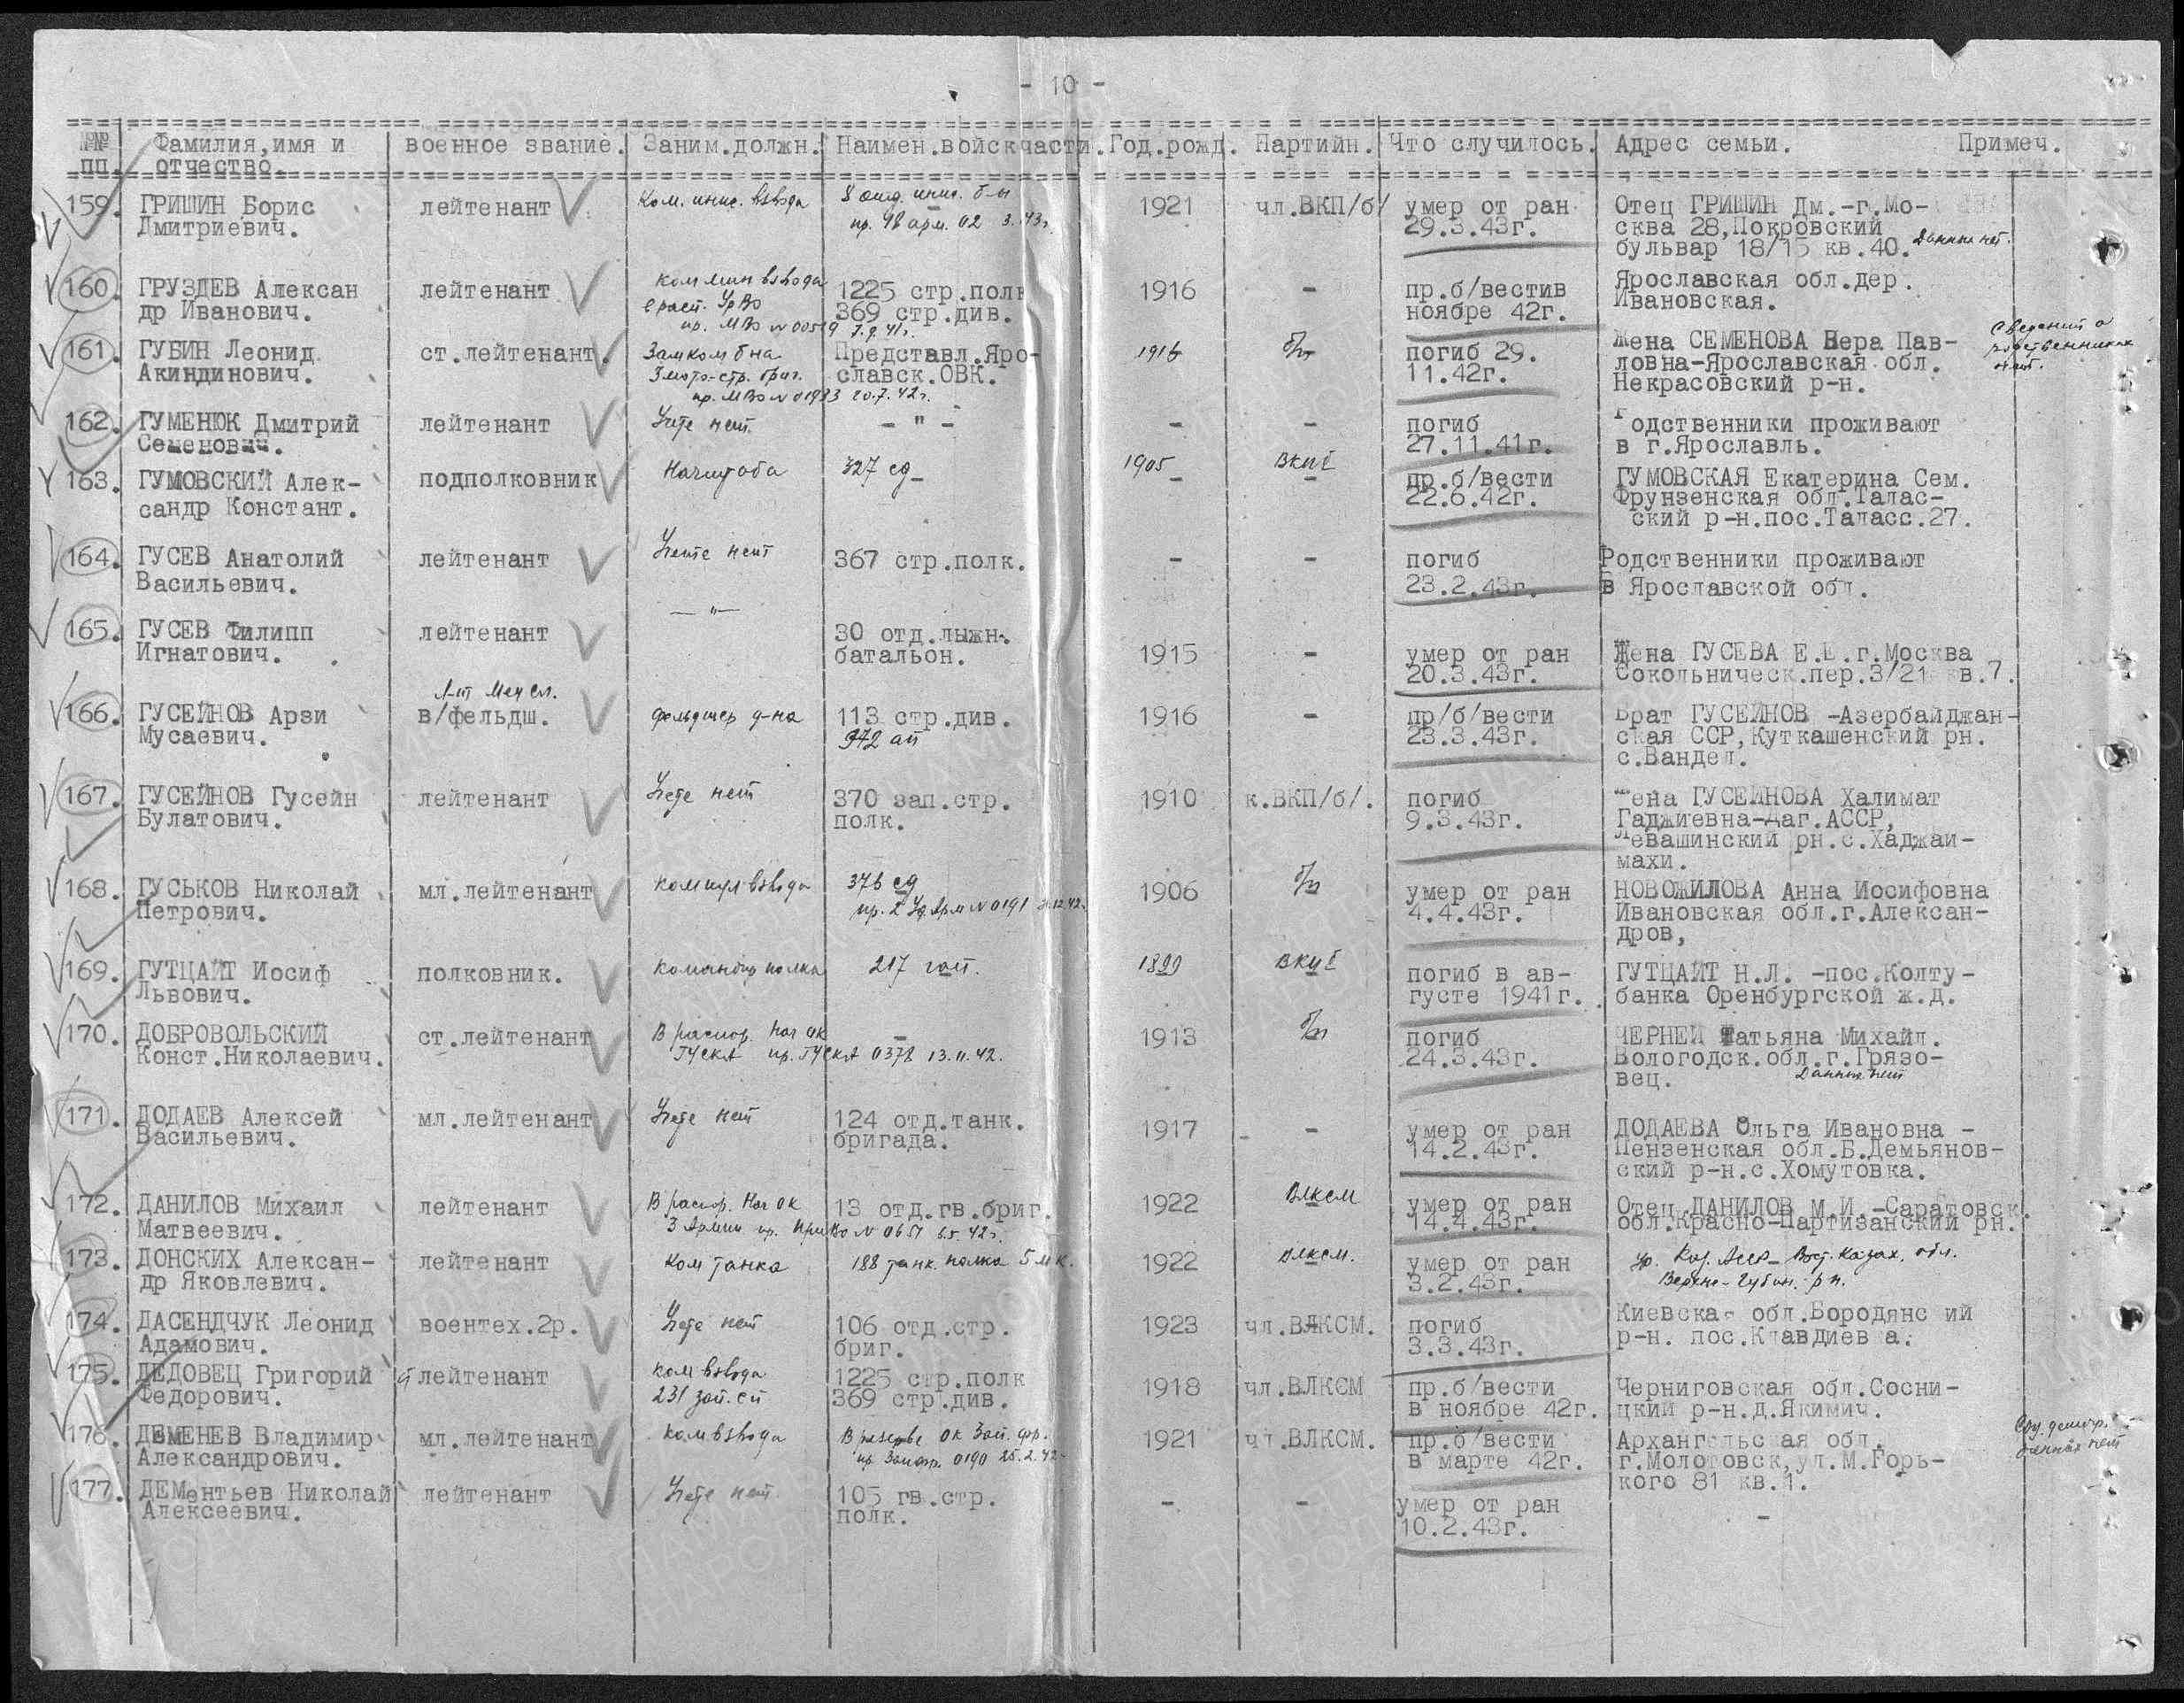 - 10 -
№№ Фамилия,имя и военное звание. Заним.должн. Наимен.войск части. Год.рожд. Партийн. Что случилось. Адрес семьи. Примеч.
пп. отчество.
159. ГРИШИН Борис лейтенант Ком. инж. взвода 8 отд. инж. б-н 1921 чл.ВКП/б/ умер от ран Отец ГРИШИН Дм.-г.Мо-
Дмитриевич. пр. 18 арм. 02 3.43г. 29.3.43г. сква 28,Покровский
бульвар 18/15 кв.40. Данных нет.
160. ГРУЗДЕВ Алексан лейтенант ком мин взвода 1225 стр.полк 1916 - пр.б/вестив Ярославская обл.дер.
др Иванович. в расп. УрВО 369 стр.див. ноябре 42г. Ивановская.
пр. МВО № 00519 7.9.41г.
161. ГУБИН Леонид ст.лейтенант. Замком б-на Представл.Яро- 1916 б/п погиб 29. Жена СЕМЕНОВА Вера Пав- Сведений о
Акиндинович. 3 мото-стр. бриг. славск.ОВК. 11.42г. ловна-Ярославская обл. родственниках
пр. МВО № 01983 20.7.42г. Некрасовский р-н. нет.
162. ГУМЕНЮК Дмитрий лейтенант Учете нет - " - - - погиб Родственники проживают
Семенович. 27.11.41г. в г.Ярославль.
163. ГУМОВСКИЙ Алек- подполковник Начштаба 327 сд - 1905 - ВКПб - пр.б/вести ГУМОВСКАЯ Екатерина Сем.
сандр Констант. 22.6.42г. Фрунзенская обл.Талас-
ский р-н.пос.Таласс.27.
164. ГУСЕВ Анатолий лейтенант Учете нет 367 стр.полк. - - погиб Родственники проживают
Васильевич. 23.2.43г. в Ярославской обл.
165. ГУСЕВ Филипп лейтенант — " — 30 отд.лыжн. 1915 - умер от ран Жена ГУСЕВА Е. .г.Москва
Игнатович. батальон. 20.3.43г. Сокольническ.пер.3/21 кв.7.
166. ГУСЕЙНОВ Арзи Л-т мед сл. в/фельдш. фельдшер д-на 113 стр.див. 1916 - пр/б/вести Брат ГУСЕЙНОВ -Азербайджан-
Мусаевич. 972 ап 23.3.43г. ская ССР,Куткашенский рн.
с.Вандел.
167. ГУСЕЙНОВ Гусейн лейтенант Учете нет 370 зап.стр. 1910 к.ВКП/б/. погиб Жена ГУСЕЙНОВА Халимат
Булатович. полк. 9.3.43г. Гаджиевна-Даг.АССР,
Левашинский рн.с.Хаджаи-
махи.
168. ГУСЬКОВ Николай мл.лейтенант ком пул взвода 376 сд 1906 б/п умер от ран НОВОЖИЛОВА Анна Иосифовна
Петрович. пр. 2 Уд Арм № 0191 42г. 4.4.43г. Ивановская обл.г.Алексан-
дров,
169. ГУТЦАЙТ Иосиф полковник. командир полка 217 гап. 1899 ВКПб погиб в ав- ГУТЦАЙТ Н.Л. -пос.Колту-
Львович. густе 1941г. банка Оренбургской ж.д.
170. ДОБРОВОЛЬСКИЙ ст.лейтенант В распор. Нач ОК - 1913 б/п погиб ЧЕРНЕЙ Татьяна Михайл.
Конст.Николаевич. ГУСКА пр. ГУСКА 0378 13.11.42. 24.3.43г. Вологодск.обл.г.Грязо-
вец. Данных нет
171. ДОДАЕВ Алексей мл.лейтенант Учете нет 124 отд.танк. 1917 - умер от ран ДОДАЕВА Ольга Ивановна -
Васильевич. бригада. 14.2.43г. Пензенская обл.Б.Демьянов-
ский р-н.с.Хомутовка.
172. ДАНИЛОВ Михаил лейтенант В распор. Нач ОК 13 отд.гв.бриг. 1922 ВЛКСМ умер от ран Отец ДАНИЛОВ М.И.-Саратовск.
Матвеевич. 3 Армии пр. ПриВО № 0651 6.5.42г. 14.4.43г. обл.Красно-Партизанский рн.
173. ДОНСКИХ Алексан- лейтенант Ком танка 188 танк. полка 5 мк. 1922 ВЛКСМ. умер от ран Ур. Каз. АССР - Вост. Казах. обл.
др Яковлевич. 3.2.43г. Верхне-Чубин. р-н.
174. ДАСЕНДЧУК Леонид воентех.2р. Учете нет 106 отд.стр. 1923 чл.ВЛКСМ. погиб Киевска обл.Бородянс ий
Адамович. бриг. 3.3.43г. р-н. пос.Клавдиев а.
175. ДЕДОВЕЦ Григорий лейтенант ком взвода 1225 стр.полк 1918 чл.ВЛКСМ пр.б/вести Черниговская обл.Сосни-
Федорович. 231 зап. сп 369 стр.див. в ноябре 42г. цкий р-н.д.Якимич.
176. ДЕМЕНЕВ Владимир мл.лейтенант ком взвода В резерве ОК Зап. фр. 1921 чл.ВЛКСМ. пр.б/вести Архангельская обл.
Александрович. пр. Запфр. 0190 25.2.42г. в марте 42г. г.Молотовск,ул.М.Горь- данных нет
кого 81 кв.1.
177. ДЕМентьев Николай лейтенант Учете нет. 105 гв.стр. - - умер от ран -
Алексеевич. полк. 10.2.43г.